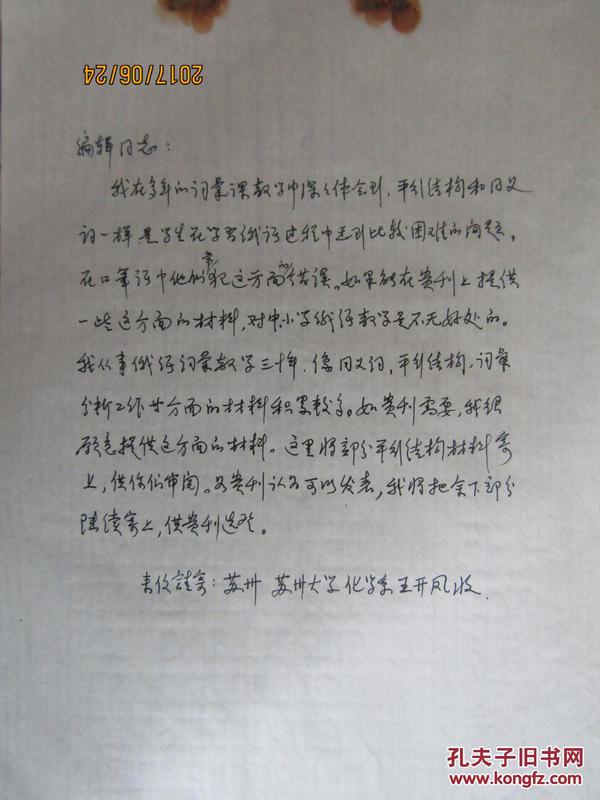 2017/06/24
编辑同志：
我在多年的词汇课教学中深深体会到，平引结构和同义
词一样是学生在学习俄语过程中遇到比较困难的问题，
在口笔语中他们常犯这方面的错误。如果能在贵刊上提供
一些这方面的材料，对中小学俄语教学是不无好处的。
我从事俄语词汇教学三十年，像同义词，平引结构，词汇
分析工作廿方面的材料积累较多。如贵刊需要，我很
愿意提供这方面的材料。这里将部分平引结构材料寄
上，供你们审阅。若贵刊认为可以发表，我将把余下部分
陆续寄上，供贵刊选登。
来信请寄：苏州 苏州大学化学系王开凤收.
孔夫子旧书网
www.kongfz.com